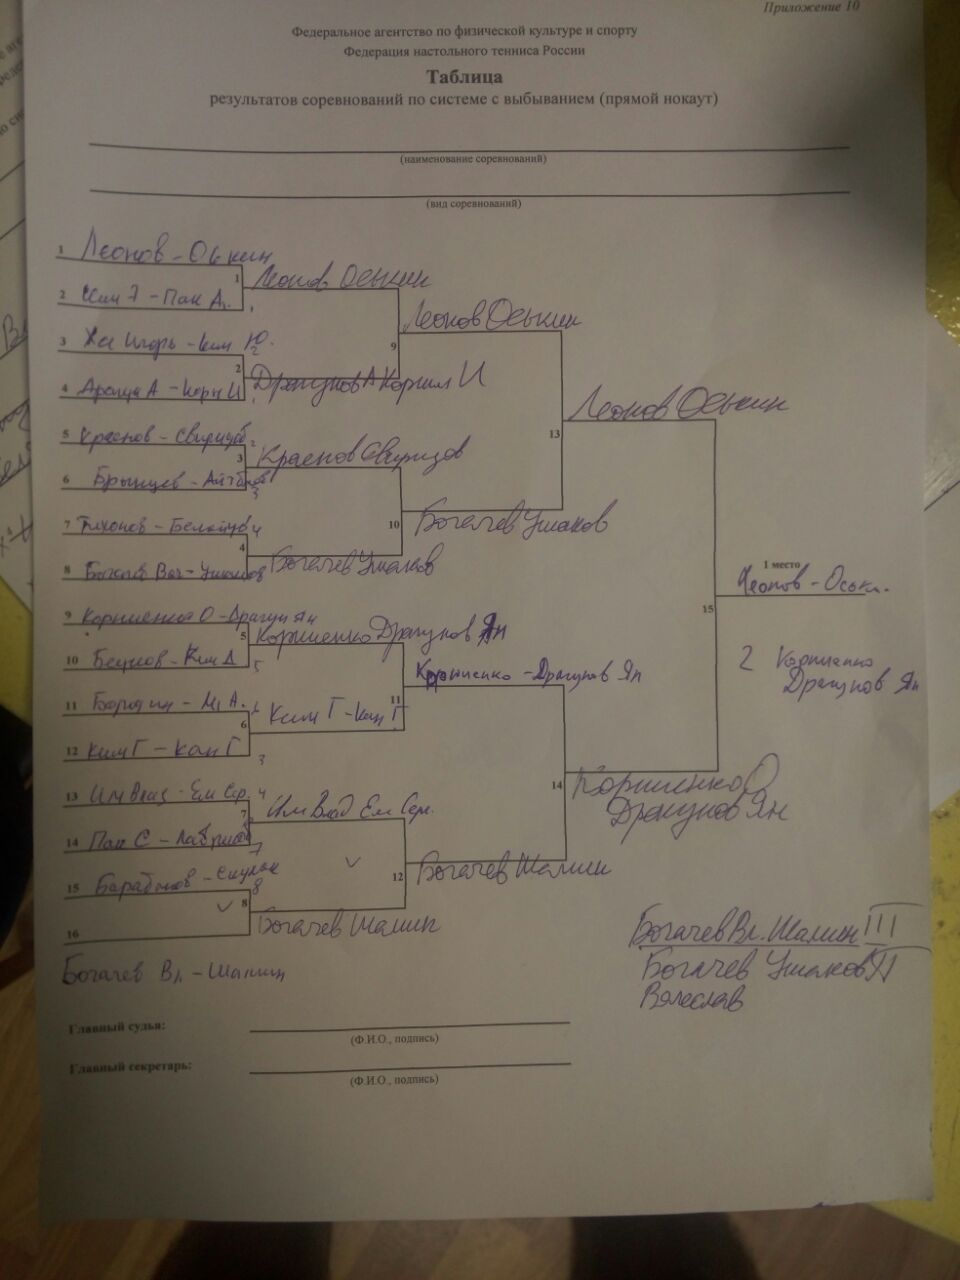 Приложение 10
Федеральное агентство по физической культуре и спорту
Федерация настольного тенниса России
Таблица
результатов соревнований по системе с выбыванием (прямой нокаут)
(наименование соревнований)
(вид соревнований)
1 Леонов - Оськин
1 Леонов Оськин
2 - Пак А.
Леонов Оськин
3 Игорь - Ким Ю.
9
2 Драгунов А Корнил И
4 Драгун А - Корн И
Леонов Оськин
13
5 Краснов - Свиридов
3 Краснов Свиридов
6 Брынцев -
10 Богачев Ушаков
7 Тихонов -
4 Богачев Ушаков
8 Богачев Вяч - Ушаков
1 место
Леонов - Оськ.
15
9 Корниенко О - Драгун Ян
5 Корниенко Драгунов Ян
10 - Ким А
Корниенко - Драгунов Ян
2 Корниенко
Драгунов Ян
11 Бородин - М А.
11
6 Ким Г - Кан Г
12 Ким Г - Кан Г
14 Корниенко О
Драгунов Ян
13 Им Влад - Ем Сер.
7 Им Влад Ем Сер.
14 Пак С -
12 Богачев Шалин
15 Барабанов -
8 Богачев Шалин
16
Богачев Вл. - Шалин
Богачев Вл. Шалин III
Богачев Ушаков
Вячеслав
Главный судья:
(Ф.И.О., подпись)
Главный секретарь:
(Ф.И.О., подпись)